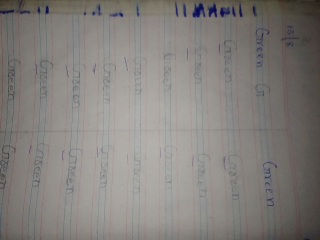 Green G Green
Green Green
Green Green
Green Green
Green Green
Green Green
Green Green
Green Green
Green Green